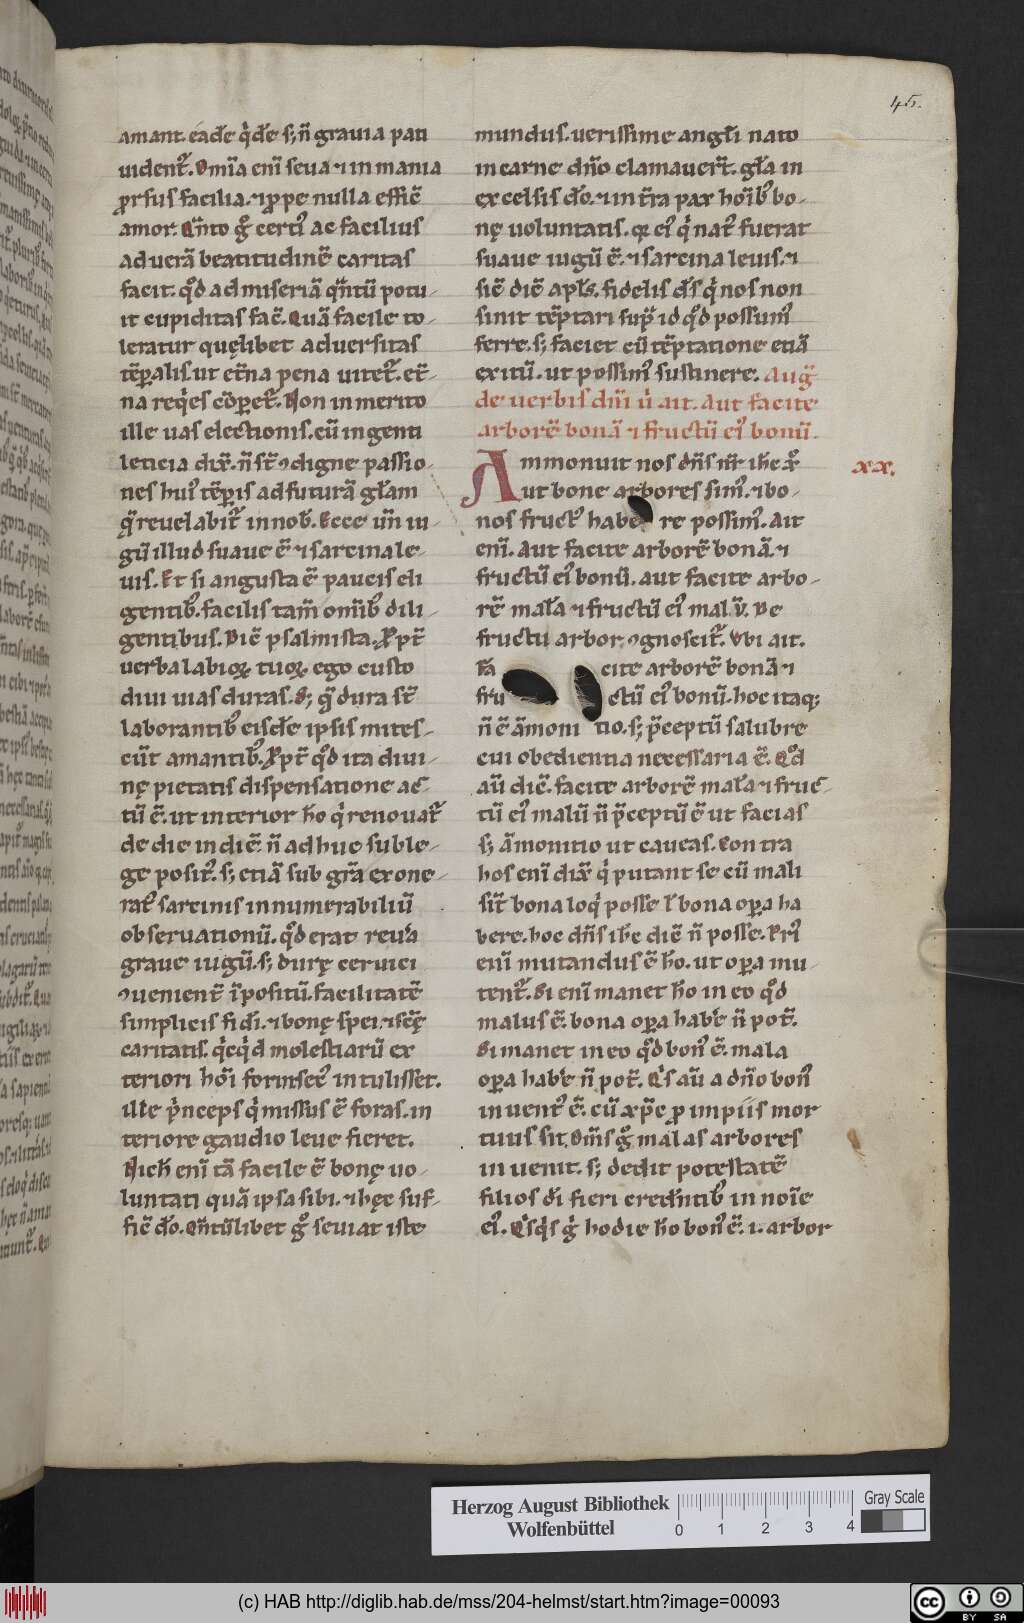 45.
amant. eadē q̇dē s; n̄ grauia pati
uidentᷣ. Om̄ia eni seua ⁊ in mania
ꝓrsus facilia. ⁊ ꝓpe nulla efficẽ
amor. Qn̄to gͦ certiꝰ ac facilius
ad uerā beatitudinē caritas
facit. qd̄ ad miseriā qn̄tū potu-
it cupiditas facē. Quā facile to-
leratur quęlibet aduersitas
tēꝑalis. ut et̄na pena uitetᷣ. et̄-
na reqͥes cōparetᷣ. Non inmerito
ille uas electionis. cū ingenti
leticia dix̄. n̄ st̄ ꝯdigne passio-
nes huiꝰ tēꝑis ad futurā gl̄am
q̄ reuelabitᷣ in nob̄. Ecce un̄ iu-
gū illud suaue ē ⁊ sarcina le-
uis. Et si angusta ē paucis eli
gentibꝰ. facilis tam̄ omībꝰ dili-
gentibus. Dic̄ psalmista. Ꝓpt̄
uerba labioꝝ tuoꝝ ego custo
diui uias duras. S; q̄ dura st̄
laborantibꝰ eisdē ipsis mites-
cūt amantibꝰ. Ꝓpt̄ qd̄ ita diui-
nę pietatis dispensatione ac-
tū ē. ut interior ho q̇ renouatᷣ
de die in diē. n̄ adhuc sub le-
ge positꝰ. s; etiā sub gr̄a exone-
ratꝰ sarcinis innumerabiliū
obseruationū. qd̄ erat reu̇a
graue iugū. s; durę ceruici
ꝯuenient̄ īpositū. facilitatē
simplicis fidi. ⁊ bonę spei. ⁊ sc̄ę
caritatis. qͥcqͥd molestiarū ex
teriori hoi forinsecꝰ intulisset.
ille pͥnceps qͥ missus ē foras. in
teriore gaudio leue fieret.
Nich̄ eni tā facile ē bonę uo-
luntati quā ipsa sibi. ⁊ hęc suf-
fic̄ do. Qn̄tūlibet gͦ seuiat iste
mundus. uerissime angli nato
in carne dn̄o clamauer̄t. gl̄a in
excelsis do. ⁊ in t̄ra pax hoībꝰ bo-
nę uoluntatis. qr eiꝰ qͥ natꝰ fuerat
suaue iugū ē. ⁊ sarcina leuis. ⁊
sic̄ dic̄ apl̄s. fidelis ds̄ qͥ nos non
sinit tēptari sup̄ id qd̄ possumꝰ
ferre. s; faciet cū tēptatione etiā
exitū. ut possimꝰ sustinere. Aug̃
de uerbis dn̄i u̇ ait. Aut facite
arborē bonā ⁊ fructū eiꝰ bonū.
xx.
Ammonuit nos dn̄s nr̄ ihc xp̄
ut bone arbores simꝰ. ⁊ bo-
nos fructꝰ habere possimꝰ. Ait
eni. Aut facite arborē bonā. ⁊
fructū eiꝰ bonū. aut facite arbo-
rē mala ⁊ fructū eiꝰ malū. De
fructu arbor ꝯgnoscitᷣ. Vbi ait.
Facite arborē bonā ⁊
fructū eiꝰ bonū. hoc itaq;
n̄ ē āmonitio. s; p̄ceptū salubre
cui obedientia necessaria ē. Qd̄
aū dic̄. facite arborē malā ⁊ fruc-
tū eiꝰ malū n̄ p̄ceptū ē ut facias
s; āmonitio ut caueas. Contra
hos eni dix̄ qͥ putant se cū mali
sīt bona loqͥ posse l̄ bona oꝑa ha
bere. hoc dn̄s ihc dic̄ n̄ posse. Priꝰ
eni mutandus ē ho. ut oꝑa mu-
tentᷣ. Si eni manet ho in eo qd̄
malus ē. bona oꝑa habe n̄ pot̄.
Si manet in eo qd̄ bonꝰ ē. mala
oꝑa habe n̄ pot̄. Qͥs aū a dn̄o bonꝰ
inuentꝰ ē. cū xp̄c ꝓ impiis mor
tuus sit. Om̄s gͦ malas arbores
inuenit. s; dedit potestatē
filios di fieri credentibꝰ in noīe
eiꝰ. Qͥsqͥs gͦ hodie ho bonꝰ ē. i. arbor
Herzog August Bibliothek
Wolfenbüttel
0 1 2 3 4
Gray Scale
(c) HAB http://diglib.hab.de/mss/204-helmst/start.htm?image=00093
cc BY SA